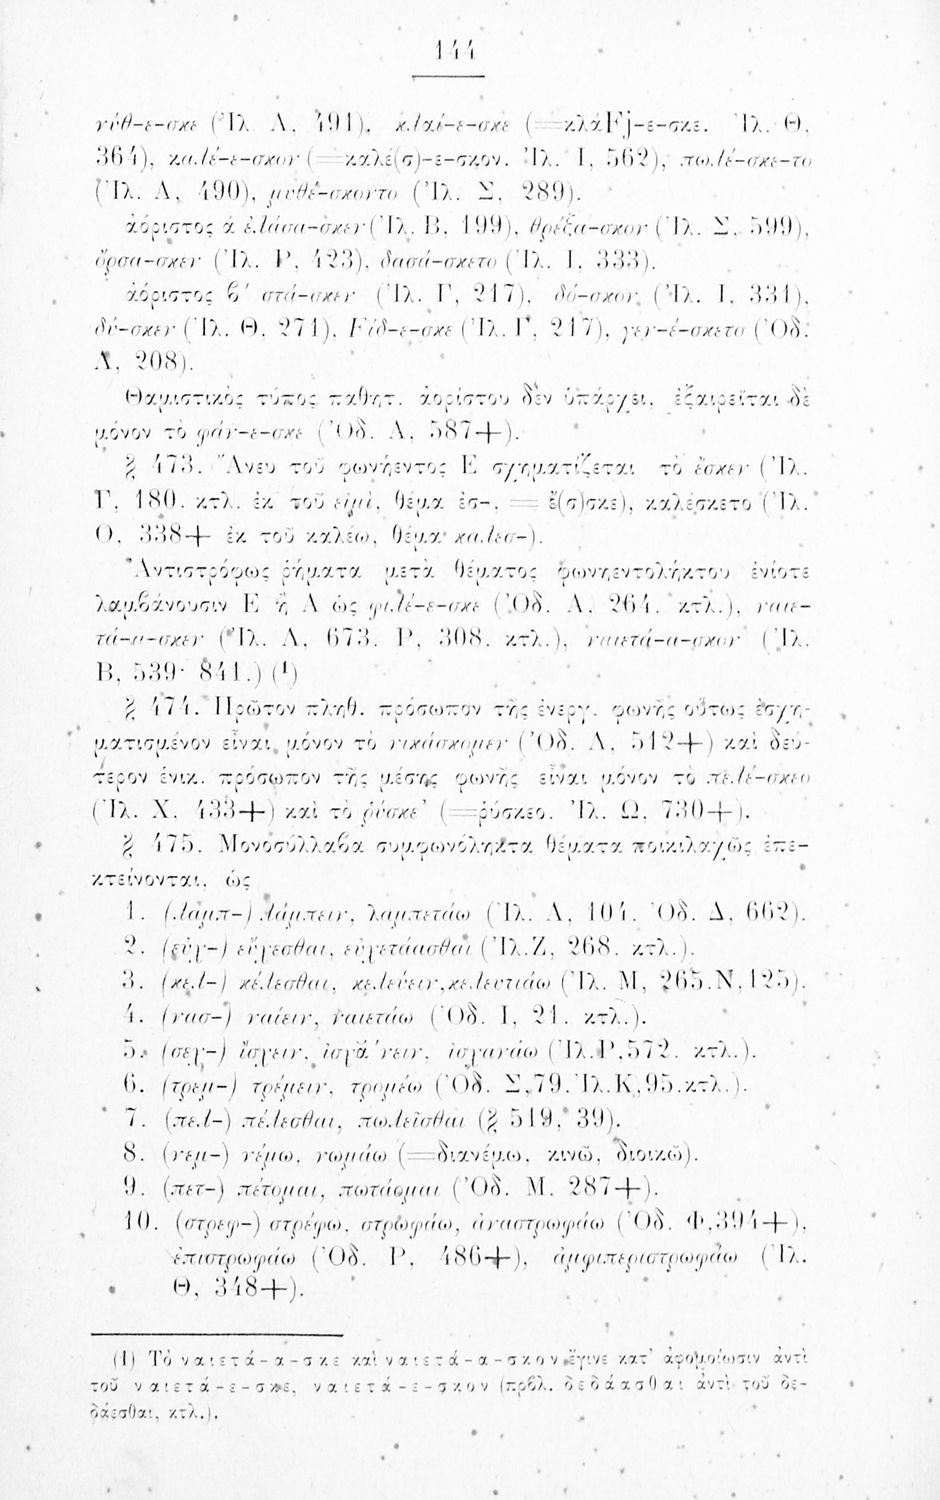 144
νύθ-ε-σκε (Ἰλ. Λ, 491), κλαί-ε-σκε (=κλάFj-ε-σκε. Ἰλ. Θ,
364), καλέ-ε-σκον (=καλέ(σ)-ε-σκον. Ἰλ. Ι, 562), πωλέ-σκε-το
(Ἰλ. Α, 490), μυθέ-σκοντο (Ἰλ. Σ, 289).
ἀόριστος ά ἐλάσα-σκεν (Ἰλ. Β, 199), θρέξα-σκον (Ἰλ. Σ, 599),
ὄρσα-σκεν (Ἰλ. Ρ, 423), δασά-σκετο (Ἰλ. Ι, 333).
ἀόριστος β΄ στά-σκεν (Ἰλ. Γ, 217), δό-σκον (Ἰλ. Ι, 331),
δύ-σκεν (Ἰλ. Θ, 271), Fίδ-ε-σκε (Ἰλ. Γ, 217), γεν-έ-σκετο (Ὀδ.
Λ, 208).
Θαμιστικὸς τύπος παθητ. ἀορίστου δὲν ὑπάρχει, ἐξαιρεῖται δὲ
μόνον τὸ φάν-ε-σκε (Ὀδ. Λ, 587+).
§ 473. Ἄνευ τοῦ φωνήεντος Ε σχηματίζεται τὸ ἔσκεν (Ἰλ.
Γ, 180. κτλ. ἐκ τοῦ εἰμὶ, θέμα ἐσ-, = ἔ(σ)σκε), καλέσκετο (Ἰλ.
Ο, 338+ ἐκ τοῦ καλέω, θέμα καλεσ-).
Ἀντιστρόφως ῥήματα μετὰ θέματος φωνηεντολήκτου ἐνίοτε
λαμβάνουσιν Ε ἢ Α ὡς φιλέ-ε-σκε (Ὀδ. Α, 264. κτλ.), ναιε-
τά-α-σκεν (Ἰλ. Λ, 673. Ρ, 308. κτλ.), ναιετά-α-σκον (Ἰλ.
Β, 539· 841.) (¹)
§ 474. Πρῶτον πληθ. πρόσωπον τῆς ἐνεργ. φωνῆς οὕτως ἐσχη-
ματισμένον εἶναι μόνον τὸ νικάσκομεν (Ὀδ. Λ, 512+) καὶ δεύ-
τερον ἑνικ. πρόσωπον τῆς μέσης φωνῆς εἶναι μόνον τὸ πελέ-σκεο
(Ἰλ. Χ, 433+) καὶ τὸ ῥύσκε’ (=ῥύσκεο. Ἰλ. Ω, 730+).
§ 475. Μονοσύλλαβα συμφωνόληκτα θέματα ποικιλαχῶς ἐπε-
κτείνονται, ὡς
1. (λαμπ-) λάμπειν, λαμπετάω (Ἰλ. Α, 104. Ὀδ. Δ, 662).
2. (εὐχ-) εὔχεσθαι, εὐχετάασθαι (Ἰλ. Ζ, 268. κτλ.).
3. (κελ-) κέλεσθαι, κελεύειν, κελευτιάω (Ἰλ. Μ, 265. Ν, 125).
4. (νασ-) ναίειν, ναιετάω (Ὀδ. Ι, 21. κτλ.).
5. (σεχ-) ἴσχειν, ἰσχάνειν, ἰσχανάω (Ἰλ. Ρ, 572. κτλ.).
6. (τρεμ-) τρέμειν, τρομέω (Ὀδ. Σ, 79. Ἰλ. Κ, 95. κτλ.).
7. (πελ-) πέλεσθαι, πωλεῖσθαι (§ 519, 39).
8. (νεμ-) νέμω, νωμάω (=διανέμω, κινῶ, διοικῶ).
9. (πετ-) πέτομαι, πωτάομαι (Ὀδ. Μ. 287+).
10. (στρεφ-) στρέφω, στρωφάω, ἀναστρωφάω (Ὀδ. Φ, 394+),
ἐπιστρωφάω (Ὀδ. Ρ, 486+), ἀμφιπεριστρωφάω (Ἰλ.
Θ, 348+).
(1) Τὸ ναιετά-α-σκε καὶ ναιετά-α-σκον ἔγινε κατ’ ἀφομοίωσιν ἀντὶ
τοῦ ναιετά-ε-σκε, ναιετά-ε-σκον (πρβλ. δεδάασθαι ἀντὶ τοῦ δε-
δάεσθαι, κτλ.).